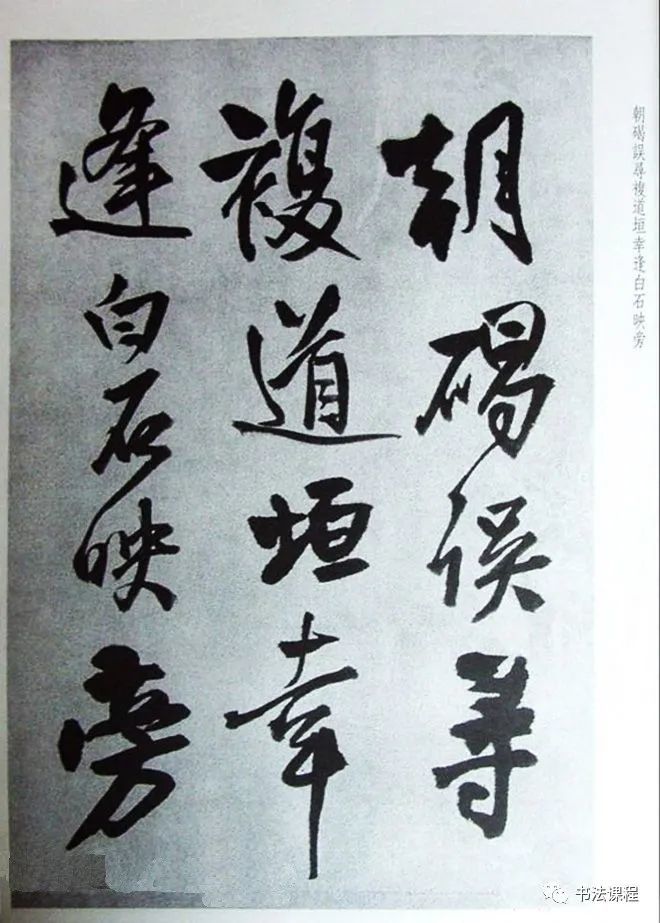 朝碣誤尋
複道垣幸
逢白石映
旁
朝碣誤尋複道垣幸逢白石映旁
书法课程